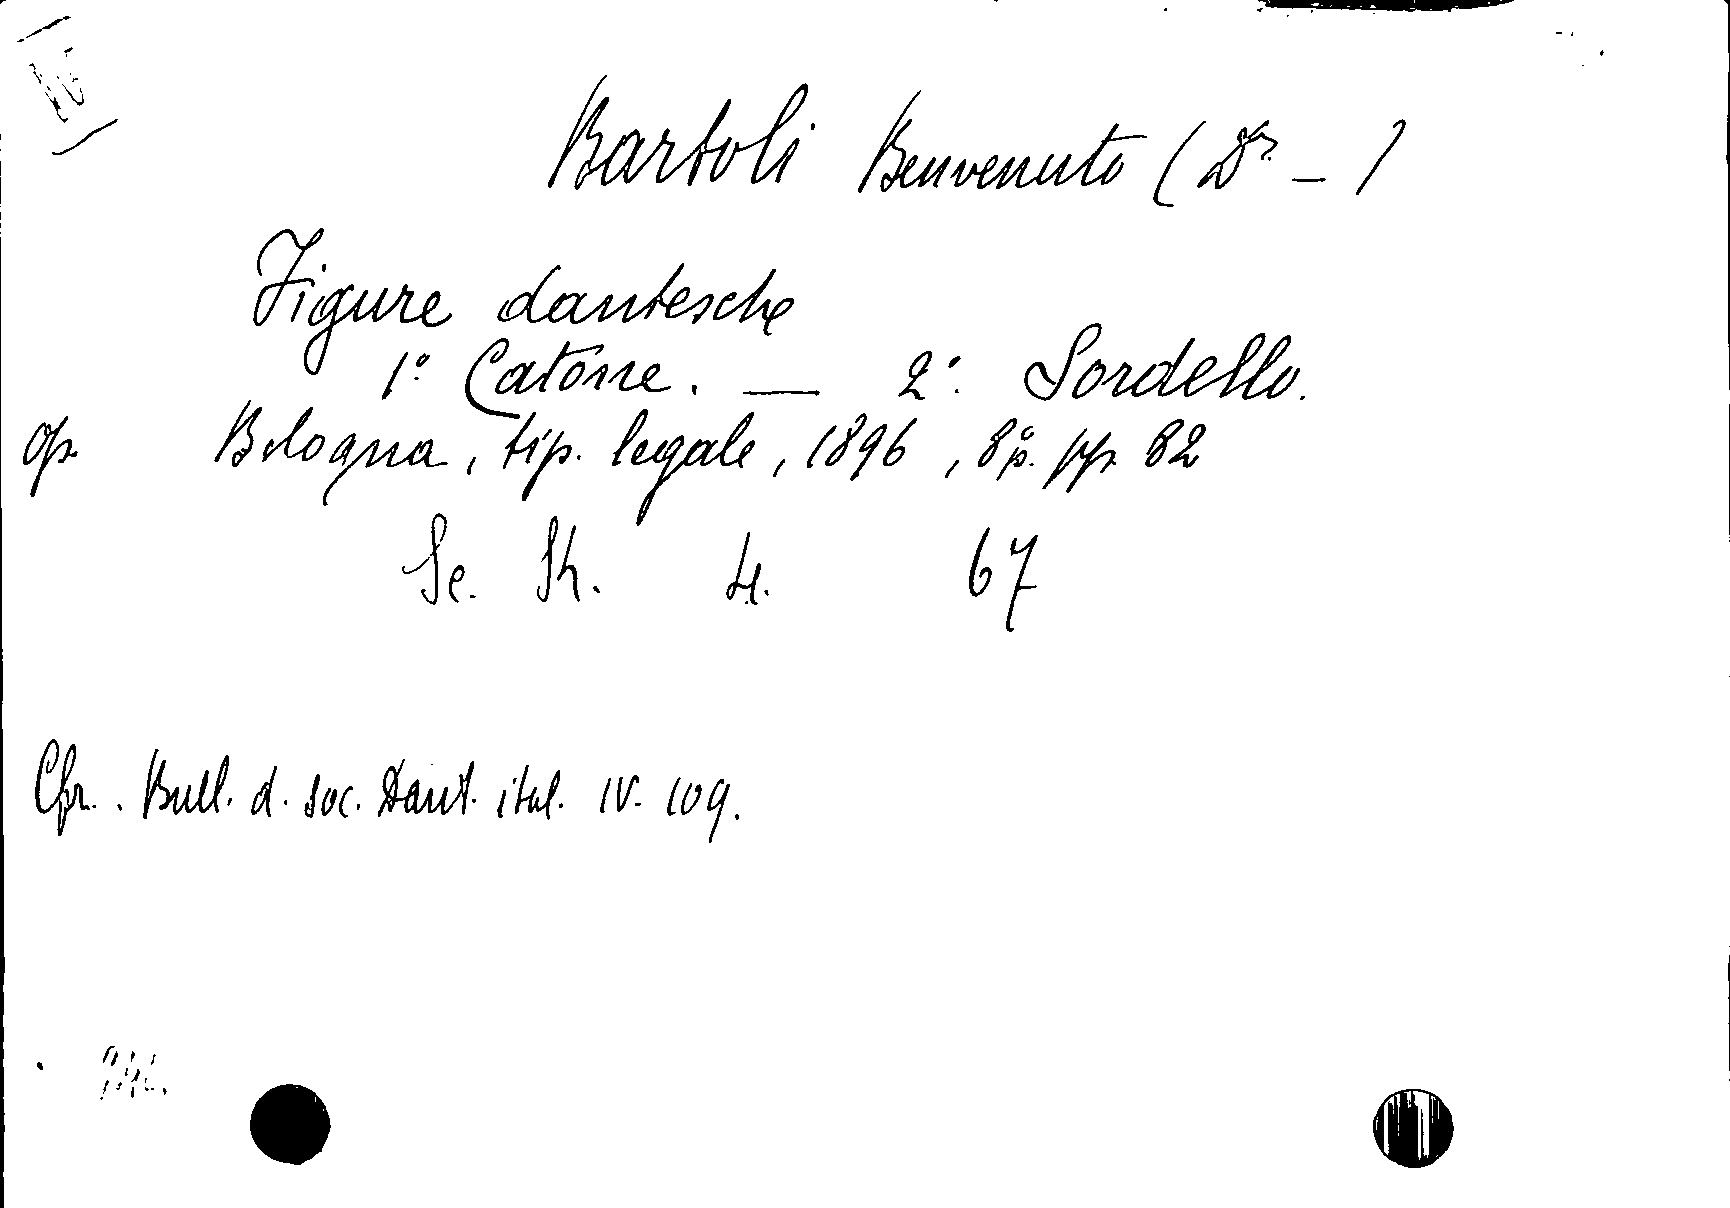 Bartoli Benvenuto (Dr. – )
Figure dantesche
1°. Catone. — 2°. Sordello.
op. Bologna, tip. legale, 1896, 8° p. pp. 32
Se. Sh. 4. 67
Cfr. Bull. d. soc. Dant. ital. IV. 109.